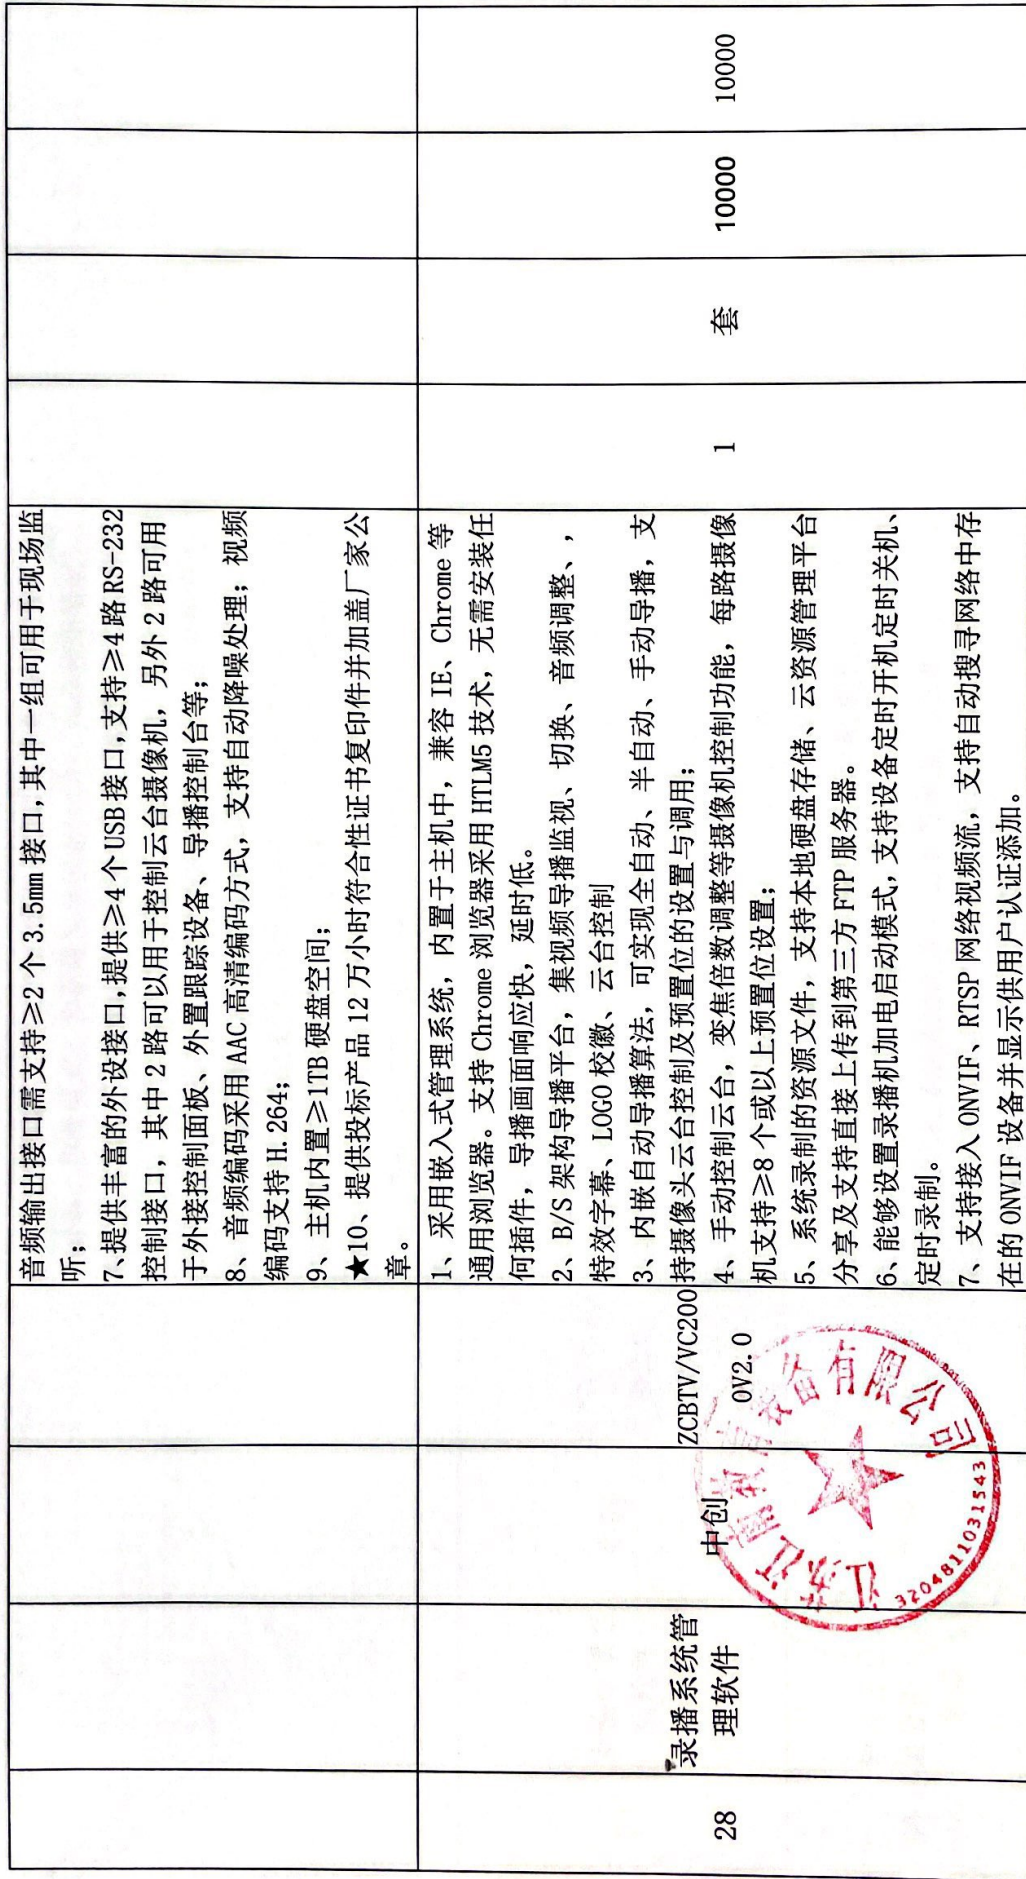 音频输出接口需支持≥2个3.5mm接口,其中一组可用于现场监
听;
7、提供丰富的外设接口,提供≥4个USB接口,支持≥4路RS-232
控制接口，其中2路可以用于控制云台摄像机，另外2路可用
于外接控制面板、外置跟踪设备、导播控制台等;
8、音频编码采用AAC高清编码方式，支持自动降噪处理；视频
编码支持H.264;
9、主机内置≥1TB硬盘空间;
★10、提供投标产品12万小时符合性证书复印件并加盖厂家公
章。
28
录播系统管
理软件
中创
ZCBTV/VC200
0V2.0
1、采用嵌入式管理系统，内置于主机中，兼容IE、Chrome等
通用浏览器。支持Chrome浏览器采用HTLM5技术，无需安装任
何插件，导播画面响应快，延时低。
2、B/S架构导播平台，集视频导播监视、切换、音频调整、,
特效字幕、LOGO校徽、云台控制
3、内嵌自动导播算法，可实现全自动、半自动、手动导播，支
持摄像头云台控制及预置位的设置与调用;
4、手动控制云台，变焦倍数调整等摄像机控制功能，每路摄像
机支持≥8个或以上预置位设置;
5、系统录制的资源文件，支持本地硬盘存储、云资源管理平台
分享及支持直接上传到第三方FTP服务器。
6、能够设置录播机加电启动模式，支持设备定时开机定时关机、
定时录制。
7、支持接入ONVIF、RTSP网络视频流，支持自动搜寻网络中存
在的ONVIF设备并显示供用户认证添加。
1
套
10000
10000
江苏江南 装备有限公司
3204811031543